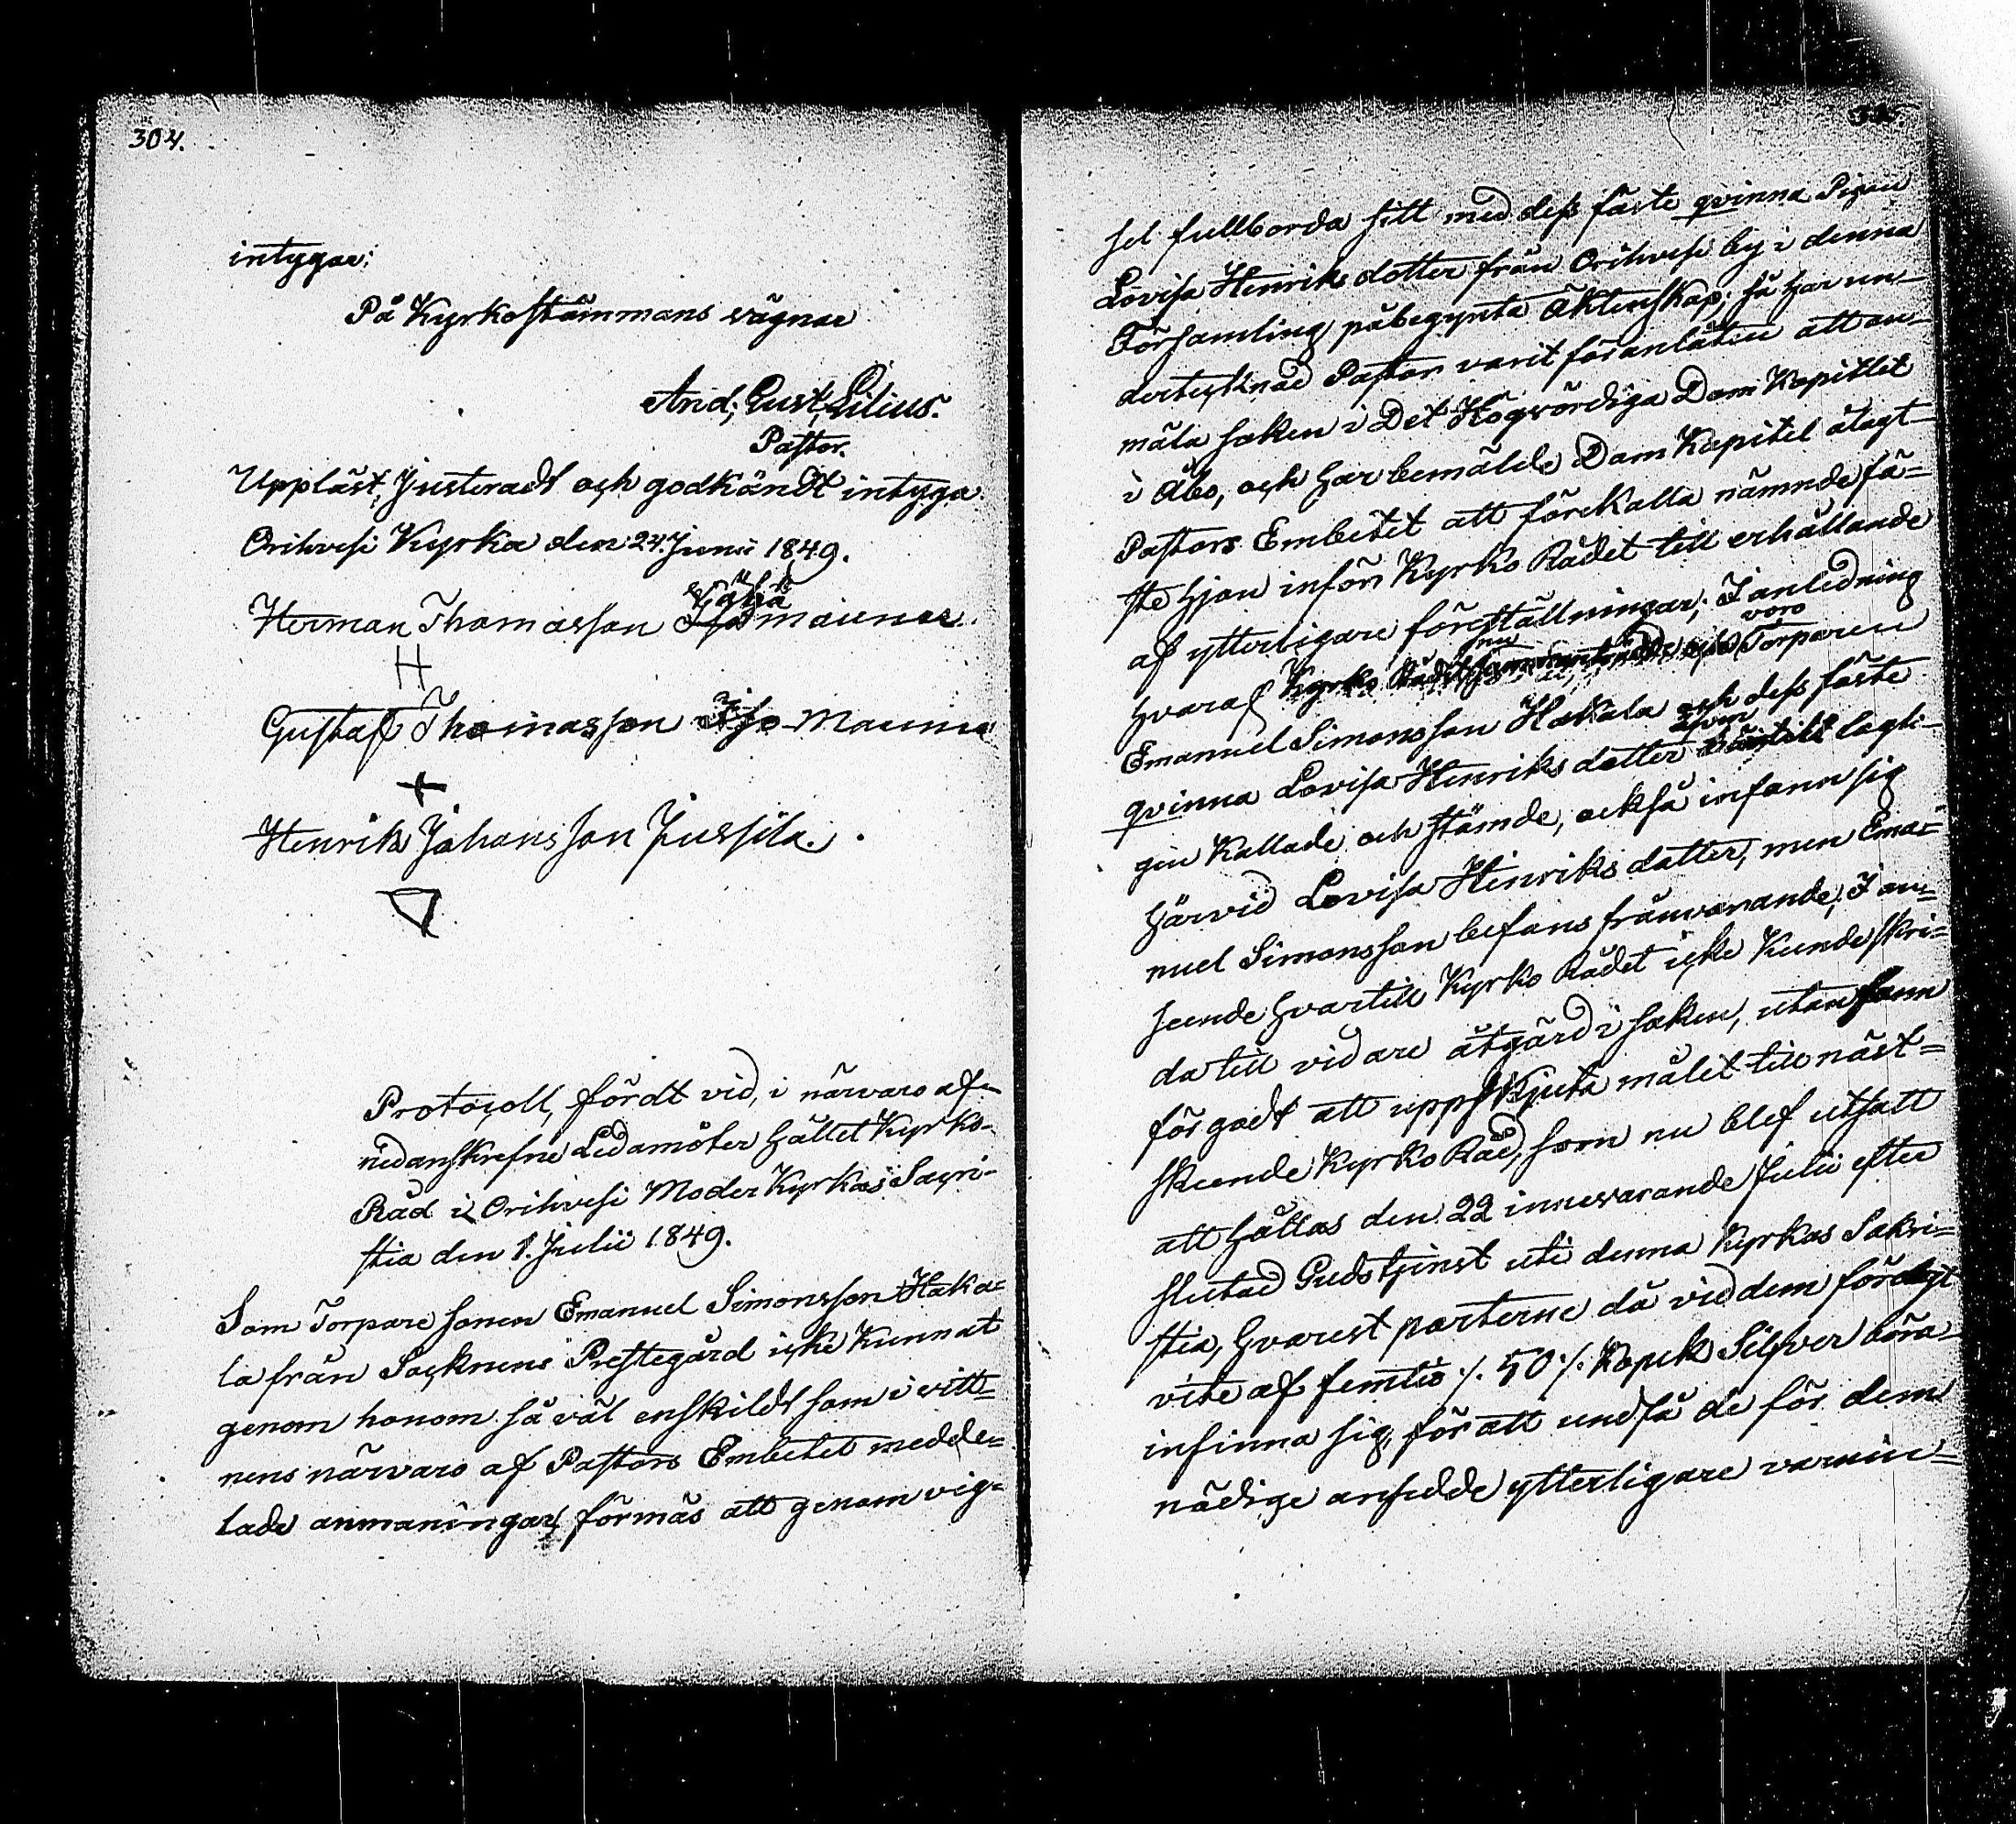 304.
intygar;
På Kyrkostämmans vägnar
And, Gust, Lilius.
Pastor.
Uppläst, Justeradt och godkändt intyga
Orihvesi Kyrka den 24. Junii 1849.
Herman Thomasson Vähä maunu
H
Gustaf Thomasson Iso-Maunu
+
Henrik Johansson Jussila.
Protocoll, fördt vid, i närvaro af
nedanskrefne Ledamöter hållet Kyrko-
Råd i Orihvesi Moder Kyrkas Sacri-
stia den 1. Julii 1849.
Som Torpare sonen Emanuel Simonsson Haka=
la från Socknens Prestegård icke kunnat
genom honom så väl enskildt som i vitt=
nens närvaro af Pastors Embetet medde=
lade anmaningar, förmås att genom vig=
sel fullborda sitt med dess fäste qvinna Pigan
Lovisa Henriks dotter från Orihvesi by i denna
Församling påbegynta Äktenskap; så har un-
dertecknad Pastor varit föranlåten att an-
mäla saken i Det Högvördiga Dom Kapitlet
i Åbo, och har bemälde Dom Kapitel ålagt
Pastors Embetet att förekalla nämnde fä=
ste hjon inför Kyrko Rådet till erhållande
af ytterligare föreställningar; I anledning
hvaraf Kyrko Rådet nu voro Torparen
Emanuel Simonsson Hakala och dess fäste
qvinna Lovisa Henriks dotter lagli-
gen kallade och stämde, också infann sig
härvid Lovisa Henriks dotter, men Ema=
nuel Simonsson befans frånvarande; I an=
seende hvartill Kyrko Rådet icke kunde skri=
da till vidare åtgärd i saken, utan fann
för godt att uppskjuta målet till näst=
skeende Kyrko Råd, som nu blef utsatt
att hållas den 22 innevarande Julii efter
slutad Gudstjenst uti denna Kyrkas Sakri=
stia, hvarest parterne då vid dem förelagt
vite af femtio /. 50 /. Kopek Silfver böra
infinna sig, för att undfå de för dem
nödige ansedde ytterligare varnin=